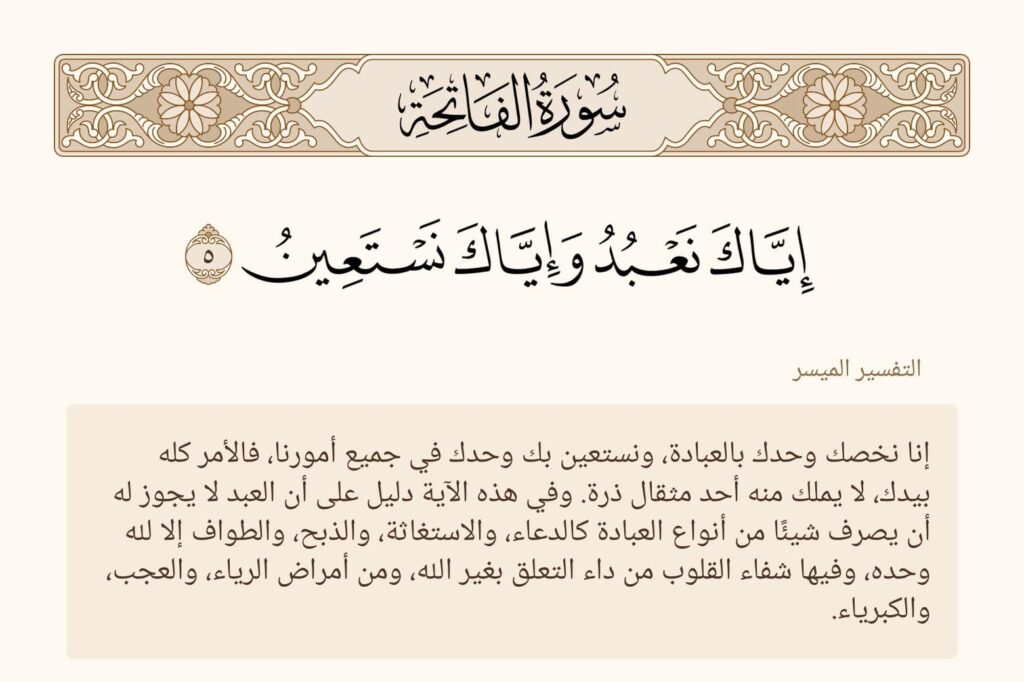 سُورَةُ الفَاتِحَةِ
إِيَّاكَ نَعْبُدُ وَإِيَّاكَ نَسْتَعِينُ ٥
التفسير الميسر
إنا نخصك وحدك بالعبادة، ونستعين بك وحدك في جميع أمورنا، فالأمر كله
بيدك، لا يملك منه أحد مثقال ذرة. وفي هذه الآية دليل على أن العبد لا يجوز له
أن يصرف شيئًا من أنواع العبادة كالدعاء، والاستغاثة، والذبح، والطواف إلا لله
وحده، وفيها شفاء القلوب من داء التعلق بغير الله، ومن أمراض الرياء، والعجب،
والكبرياء.